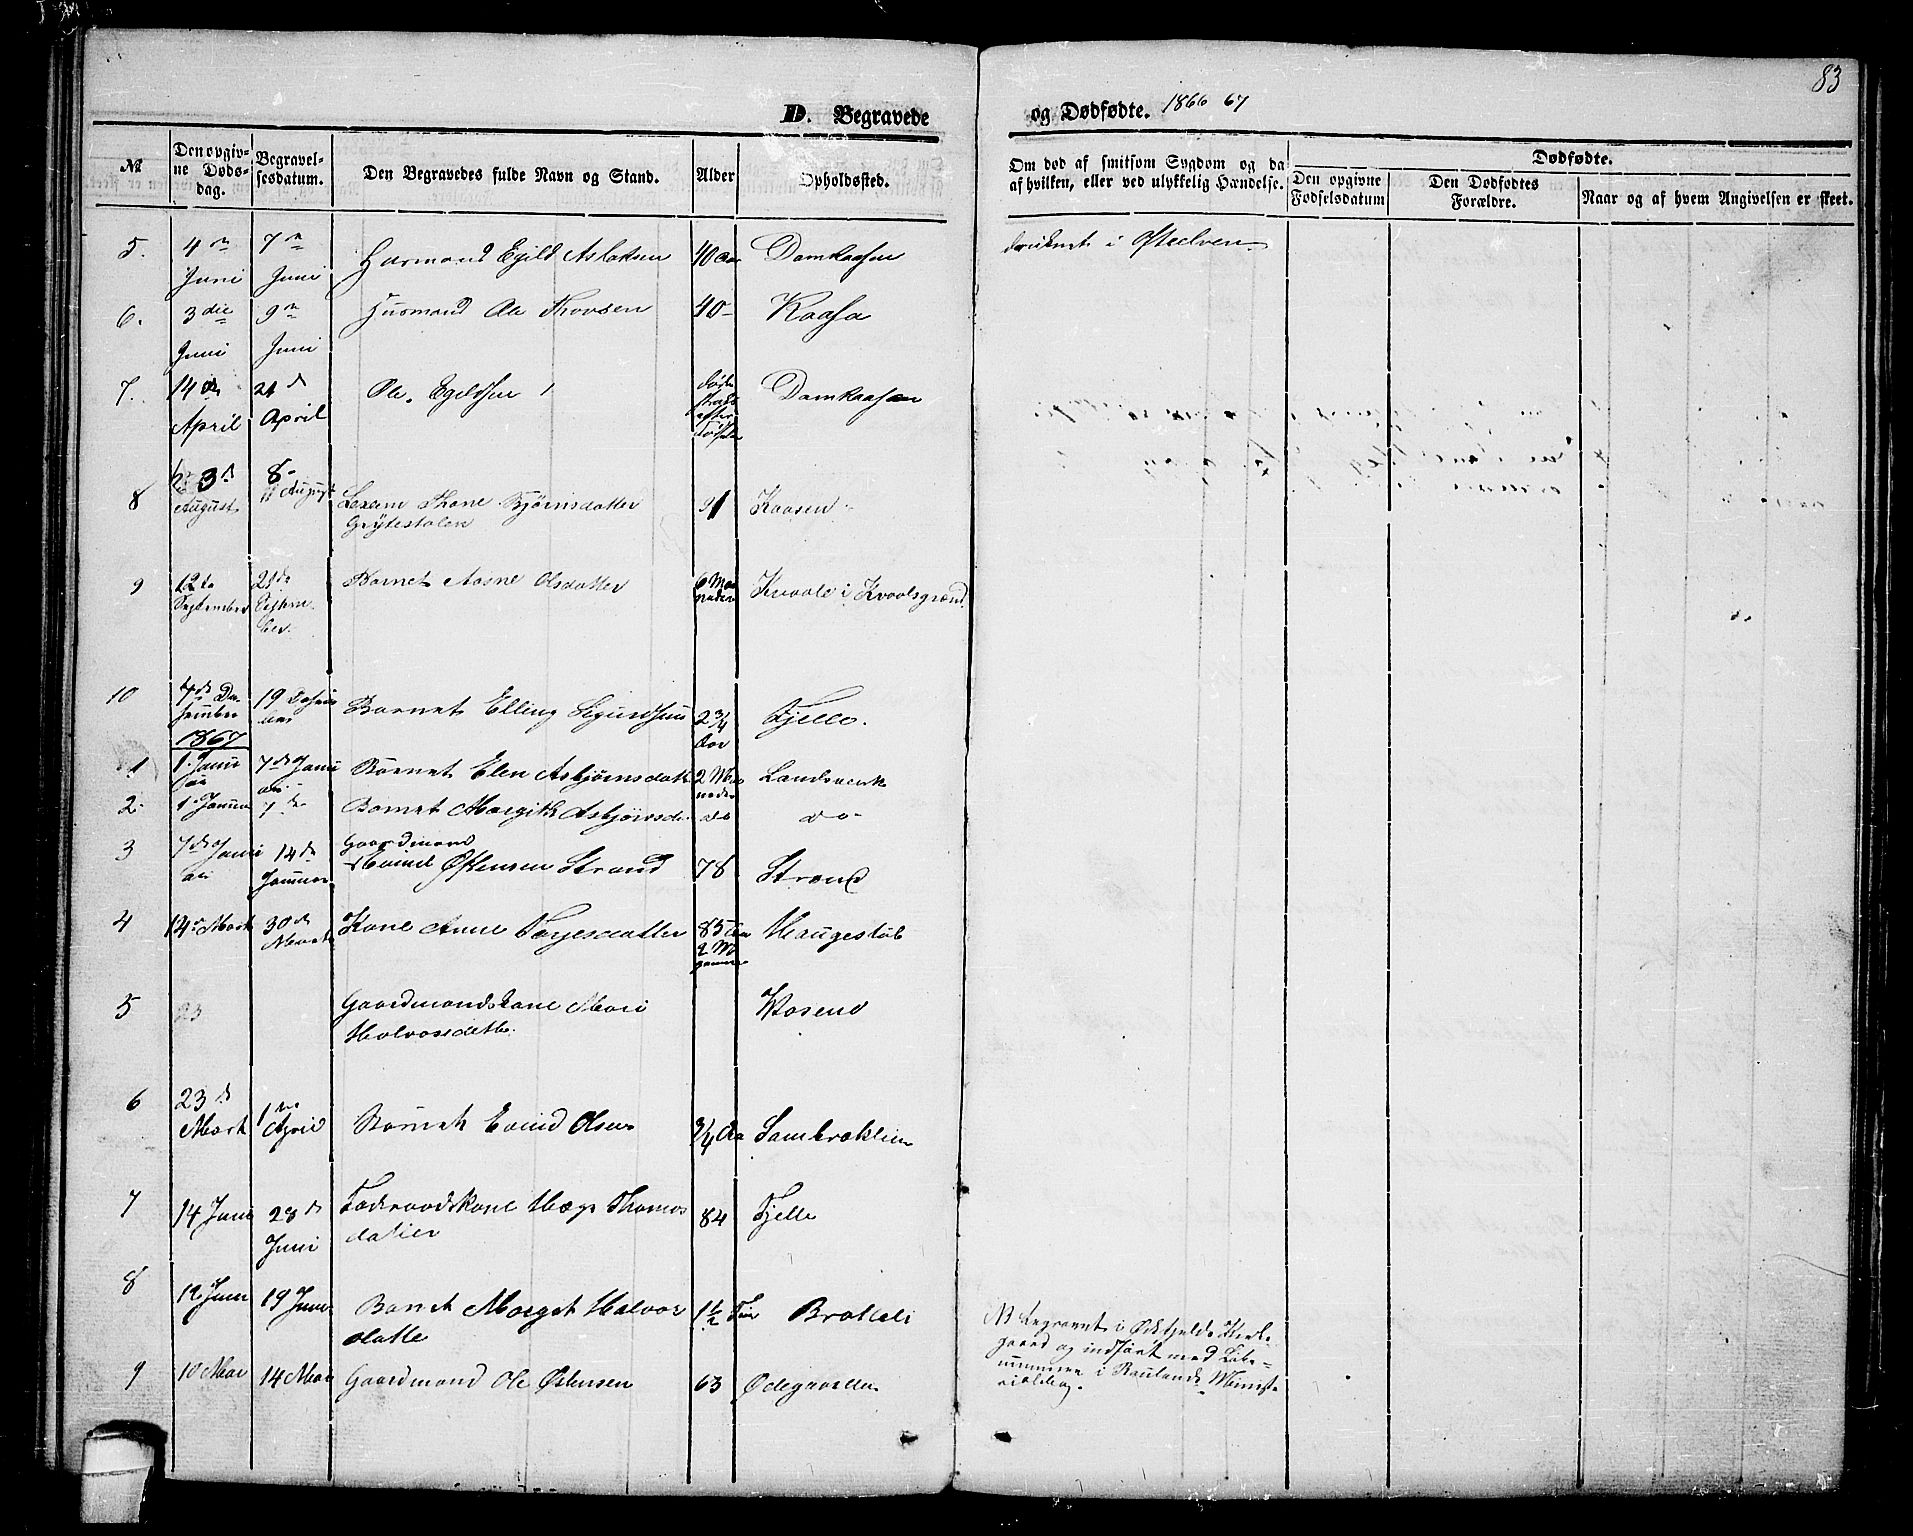 83
D. Begravede og Dødfødte. 1866 67
№ Den opgivne Dødsdag. Begravelsesdatum. Den Begravedes fulde Navn og Stand. Alder Opholdssted. Om død af smitsom Sygdom og da af hvilken, eller ved ulykkelig Hændelse. Dødfødte.
Den opgivne Fødselsdatum Den Dødfødtes Forældre. Naar og af hvem Angivelsen er skeet.
5. 4 Juni 7 Juni Husmand Egild Aslaksen 40 Aar Damkaasen druknet i Østeelven
6. 3die Juni 9 Juni Husmand Ole Thovsen 40 Kaasa
7. 14de April 21d April Ole Egildsen Døde strax efter Fødselen Damkaasen
8 3d August 8 August Bjørnsdatter
Grytestolen 91 Kaasen
9 12te September 21de Septem-
ber Barnet Aasne Olsdatter 6 Maa
neder Kvaale i Kvaalsgrænd
10 7de December 19 Barnet Elling Sigurdsen 2 3/4 Aar Fjelle.
1867
1 1 Januar 7de Januar Barnet Elen Asbjørnsdatt 2 Maa
neder Landsverk
2 1 Januar 7de Barnet Margith Asbjørnsdr do do
3 7de Januar 14de Januar Gaardmand
Eivind Østensen Strand 78 Strand
4 14 Marts 30de Marts Kone Anne Torjesdatter 85 Aar Haugestøl
5 23 Gaardmandskone Mari
Halvorsdatter Rosend
6 23d Marts 1 April Barnet Eivind Olsen 3/4 Aar Sambroklien
7 14 Juni 28d Juni Føderaadskone Hæge Thomas
datter 84 Fjelle
8 12 Juni 19 Juni Barnet Margit Halvors
datte 1 1/2 Brokkeli
9 10 Mai 14 Mai Gaardmand Ole Østensen 63 Ødegaarden
NB begravet i Øifjelds Kirke-
gaard og indført med Løbe-
nummer i Raulands Minist
rialbog.